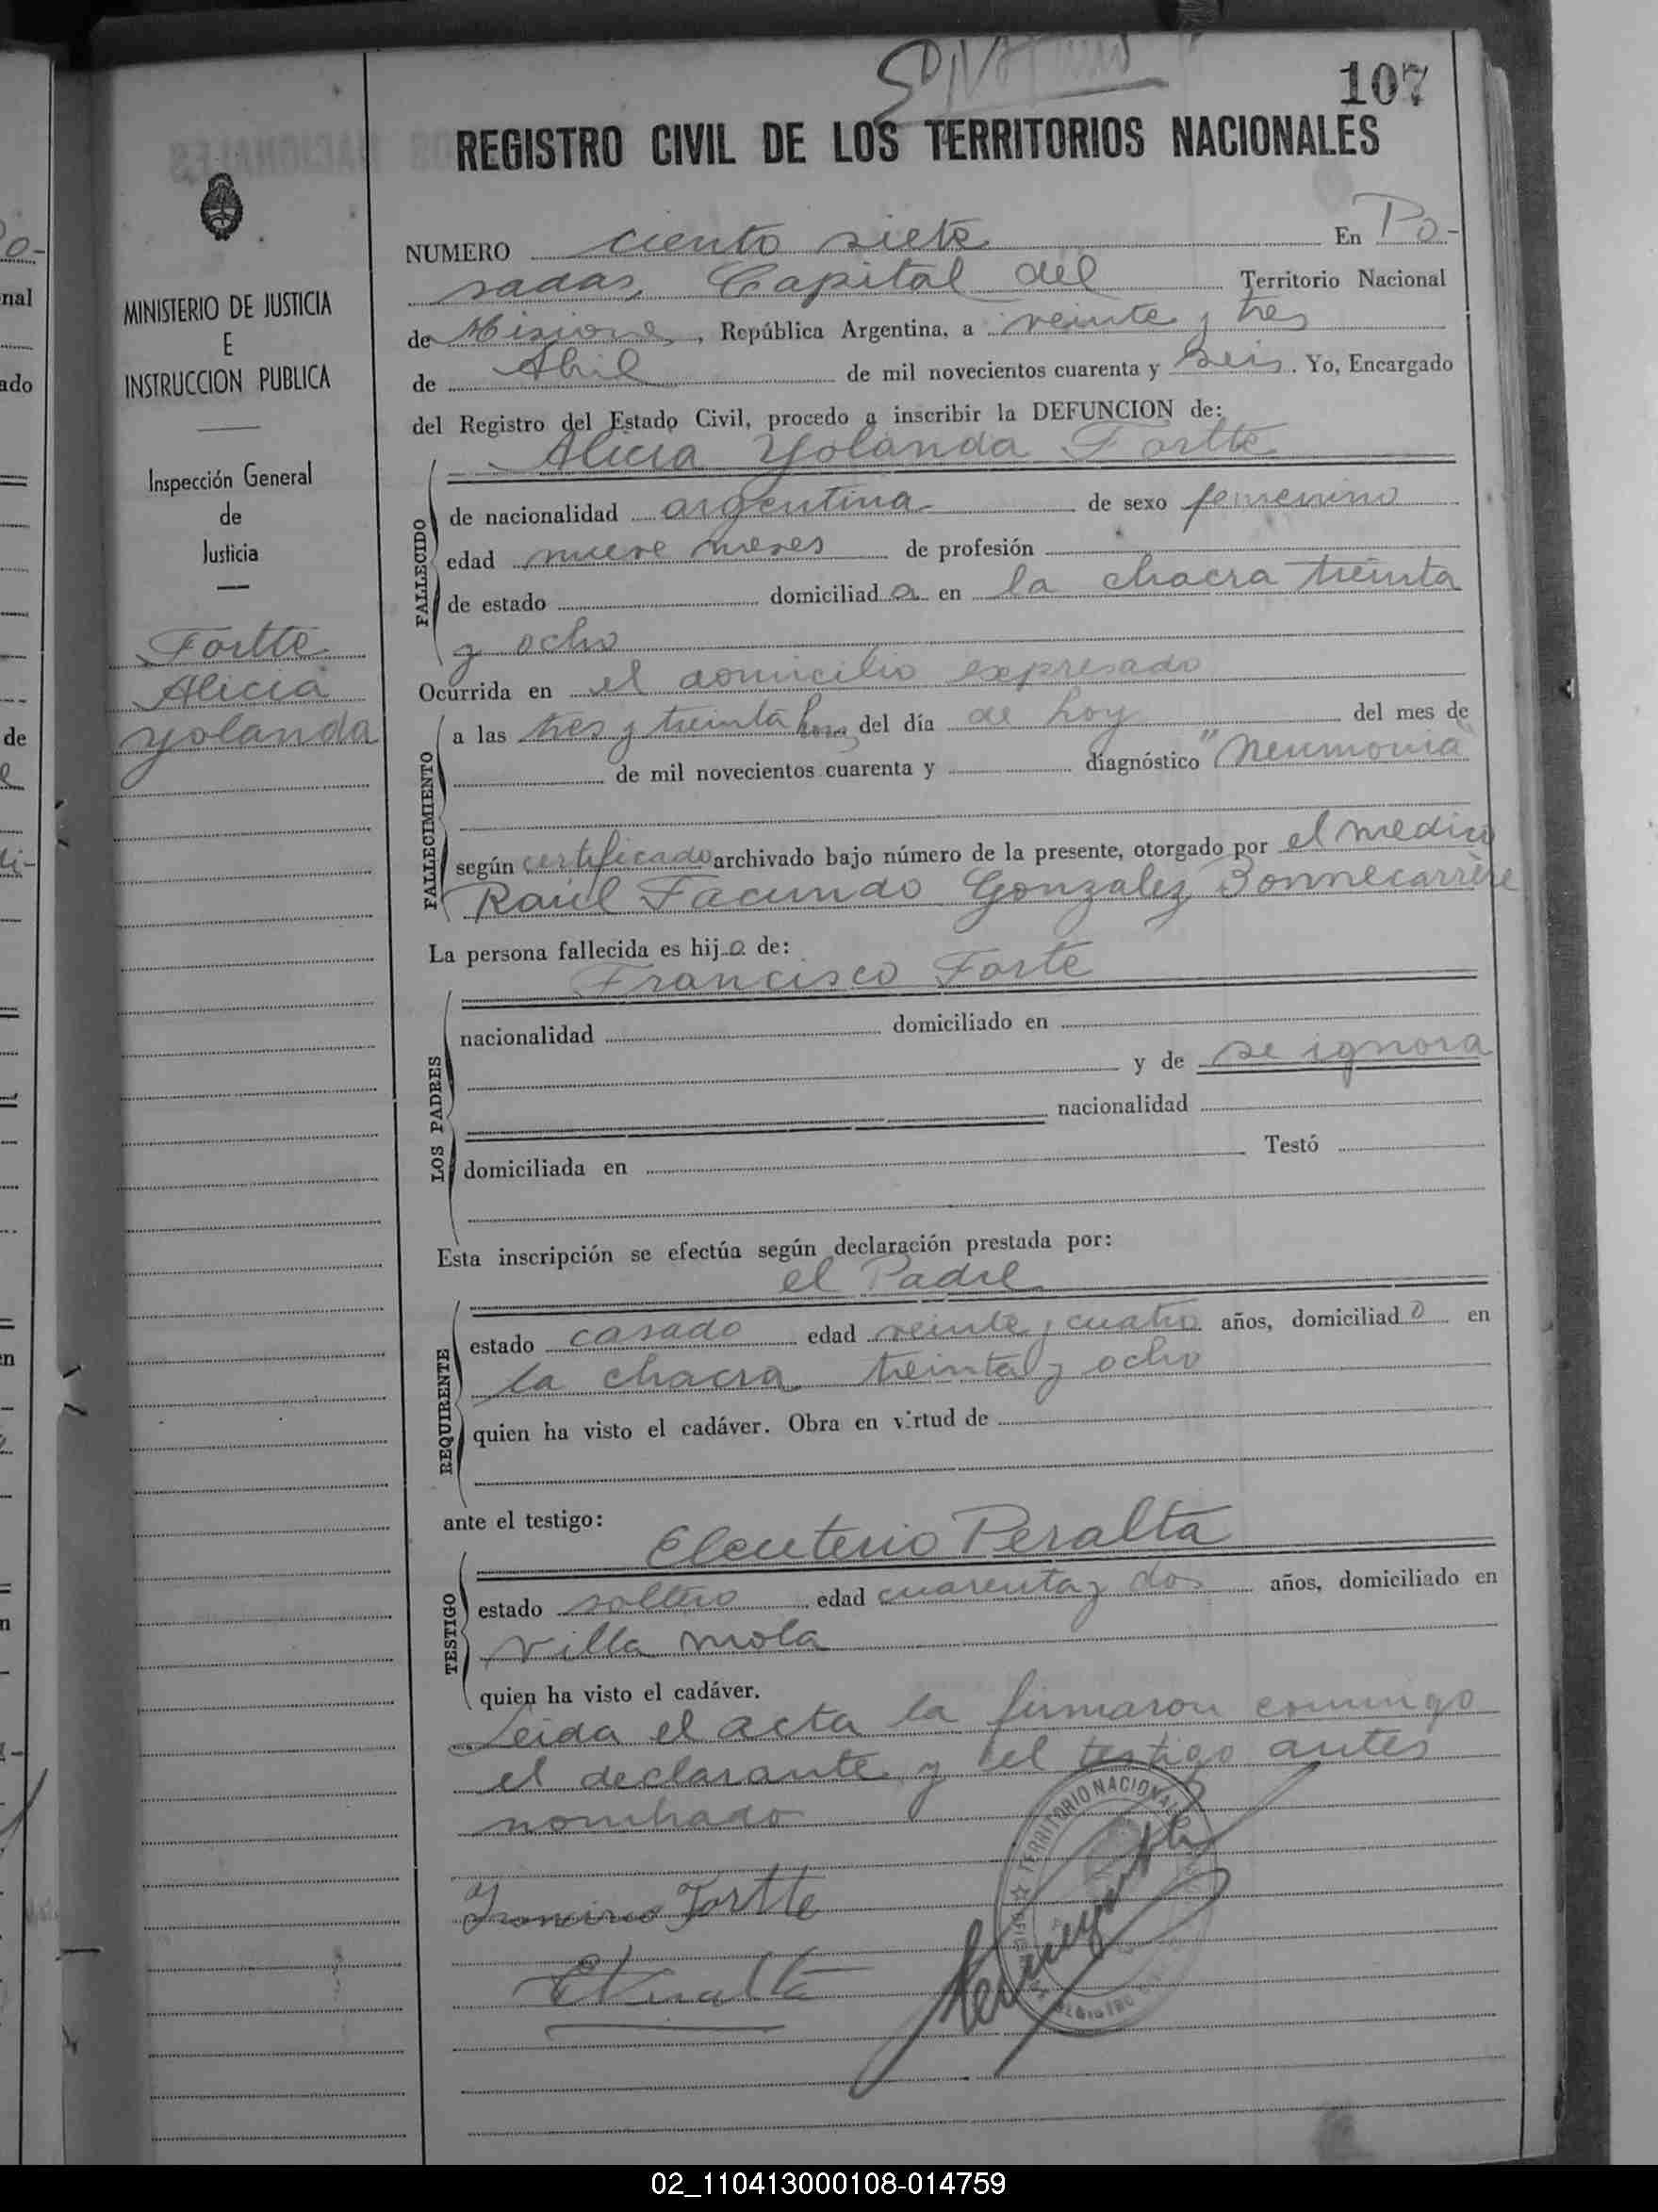 107
REGISTRO CIVIL DE LOS TERRITORIOS NACIONALES
MINISTERIO DE JUSTICIA
E
INSTRUCCION PUBLICA
Inspección General
de
Justicia
Fortte
Alicia
Yolanda
NUMERO ciento siete En Po-
sadas, Capital del Territorio Nacional
de Misiones, República Argentina, a veinte y tres
de Abril de mil novecientos cuarenta y seis. Yo, Encargado
del Registro del Estado Civil, procedo a inscribir la DEFUNCION de:
Alicia Yolanda Fortte
FALLECIDO
de nacionalidad argentina de sexo femenino
edad nueve meses de profesión
de estado domiciliada en la chacra treinta
y ocho
Ocurrida en el domicilio expresado
FALLECIMIENTO
a las tres y treinta horas del día de hoy del mes de
de mil novecientos cuarenta y diagnóstico "Neumonia"
según certificado archivado bajo número de la presente, otorgado por el medico
Raúl Facundo Gonzalez Bonnecarrère
La persona fallecida es hija de:
Francisco Forte
LOS PADRES
nacionalidad domiciliado en
y de se ignora
nacionalidad
domiciliada en Testó
Esta inscripción se efectúa según declaración prestada por:
el Padre
REQUIRENTE
estado casado edad veinte y cuatro años, domiciliado en
la chacra treinta y ocho
quien ha visto el cadáver. Obra en virtud de
ante el testigo:
Eleuterio Peralta
TESTIGO
estado soltero edad cuarenta y dos años, domiciliado en
Villa mola
quien ha visto el cadáver.
Leida el acta la firmaron conmigo
el declarante y el testigo antes
nombrado
TERRITORIO NACIONAL
Francisco Fortte
EPeralta
02_110413000108-014759